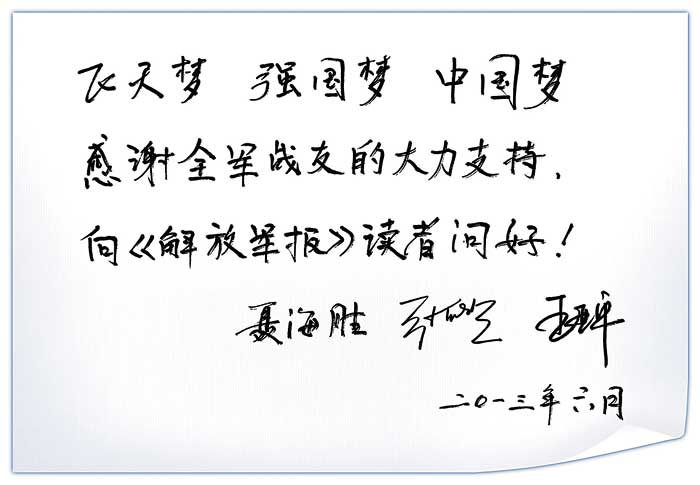 飞天梦 强国梦 中国梦
感谢全军战友的大力支持,
向《解放军报》读者问好!
聂海胜 张晓光 王亚平
二〇一三年六月